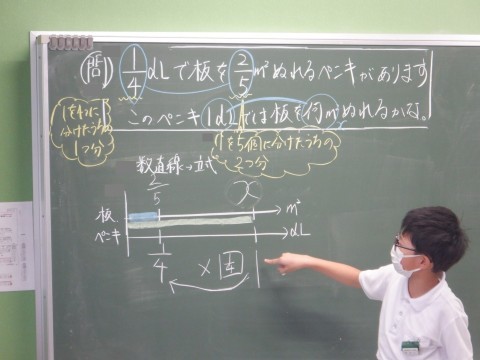 (問) 1/4 dLで板を 2/5 m²ぬれるペンキがあります
このペンキ1dLでは板を何m²ぬれるかな。
1を4つに
分けたうちの
1つ分
1を5個に分けたうちの
2つ分
数直線→立式
2/5 x
板 m²
ペンキ dL
1/4 × 1/4 1